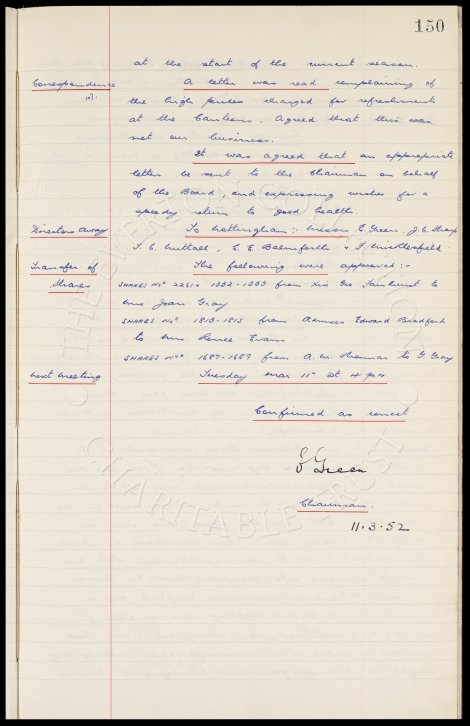 150
at the start of the current season.
Correspondence A letter was read complaining of
the high prices charged for refreshments
at the Canteens. Agreed that this was
not our business.
It was agreed that an appropriate
letter be sent to the Chairman on behalf
of the Board, and expressing wishes for a
speedy return to good health.
Directors away To Nottingham:- Messrs E. Green, J. C. Sharp
T. C. Nuttall, C. E. Balmforth & F. Micklesfield.
Transfer of The following were approved:-
Shares SHARES Nos 2261 & 1332-1333 from to
Mrs Joan Gray
SHARES Nos 1813-1815 from Edward Bradford
to Mrs Renee Evans
SHARES Nos 1687-1689 from A. W. Thomas to G. Gray
Next meeting Tuesday Mar 11th at 4 p.m
Confirmed as correct
E Green
Chairman.
11.3.52
THE EVERTON COLLECTION
CHARITABLE TRUST